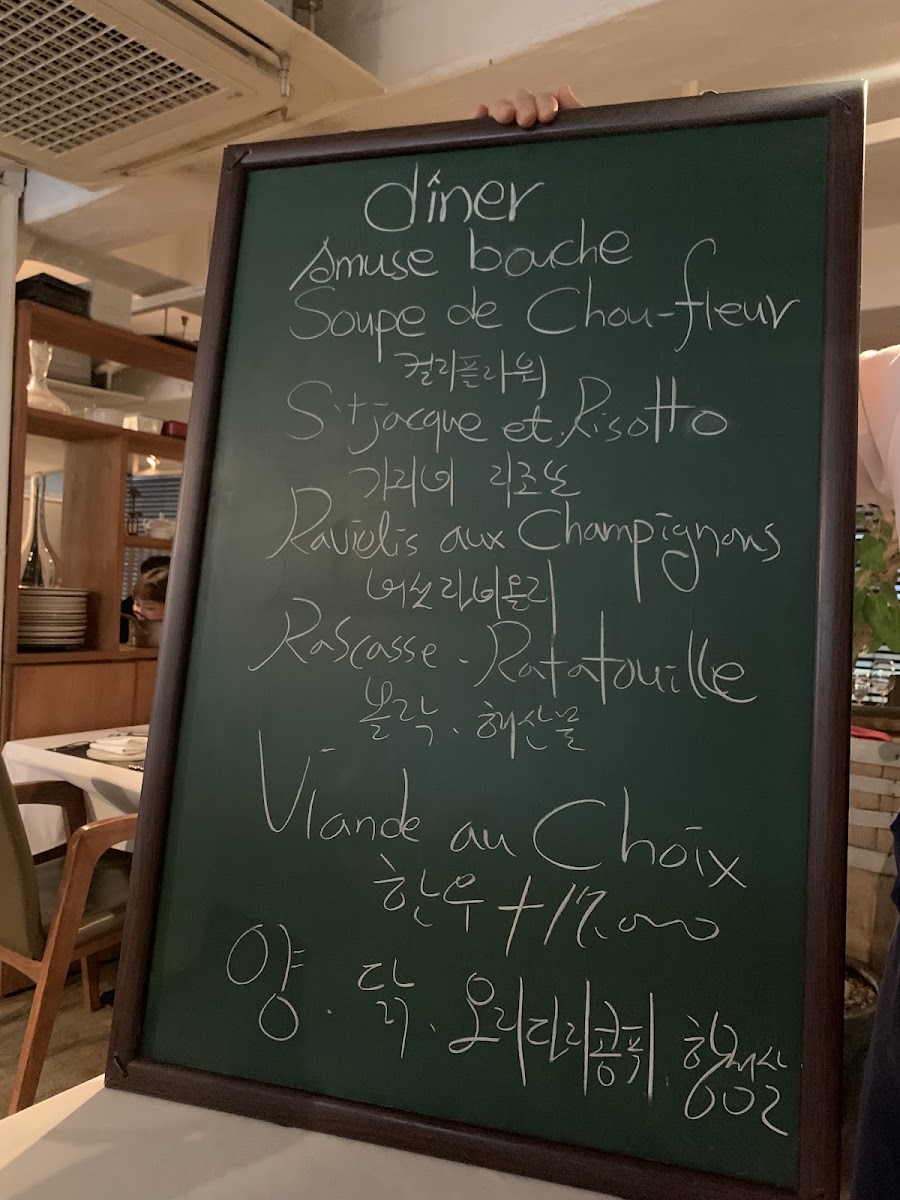 dîner
Amuse bouche
Soupe de Chou-fleur
컬리플라워
St jacque et Risotto
가리비 리조또
Raviolis aux Champignons
버섯라비올리
Rascasse - Ratatouille
볼락 . 해산물
Viande au Choix
한우 +17,000
양 . 닭 . 오리다리콩피